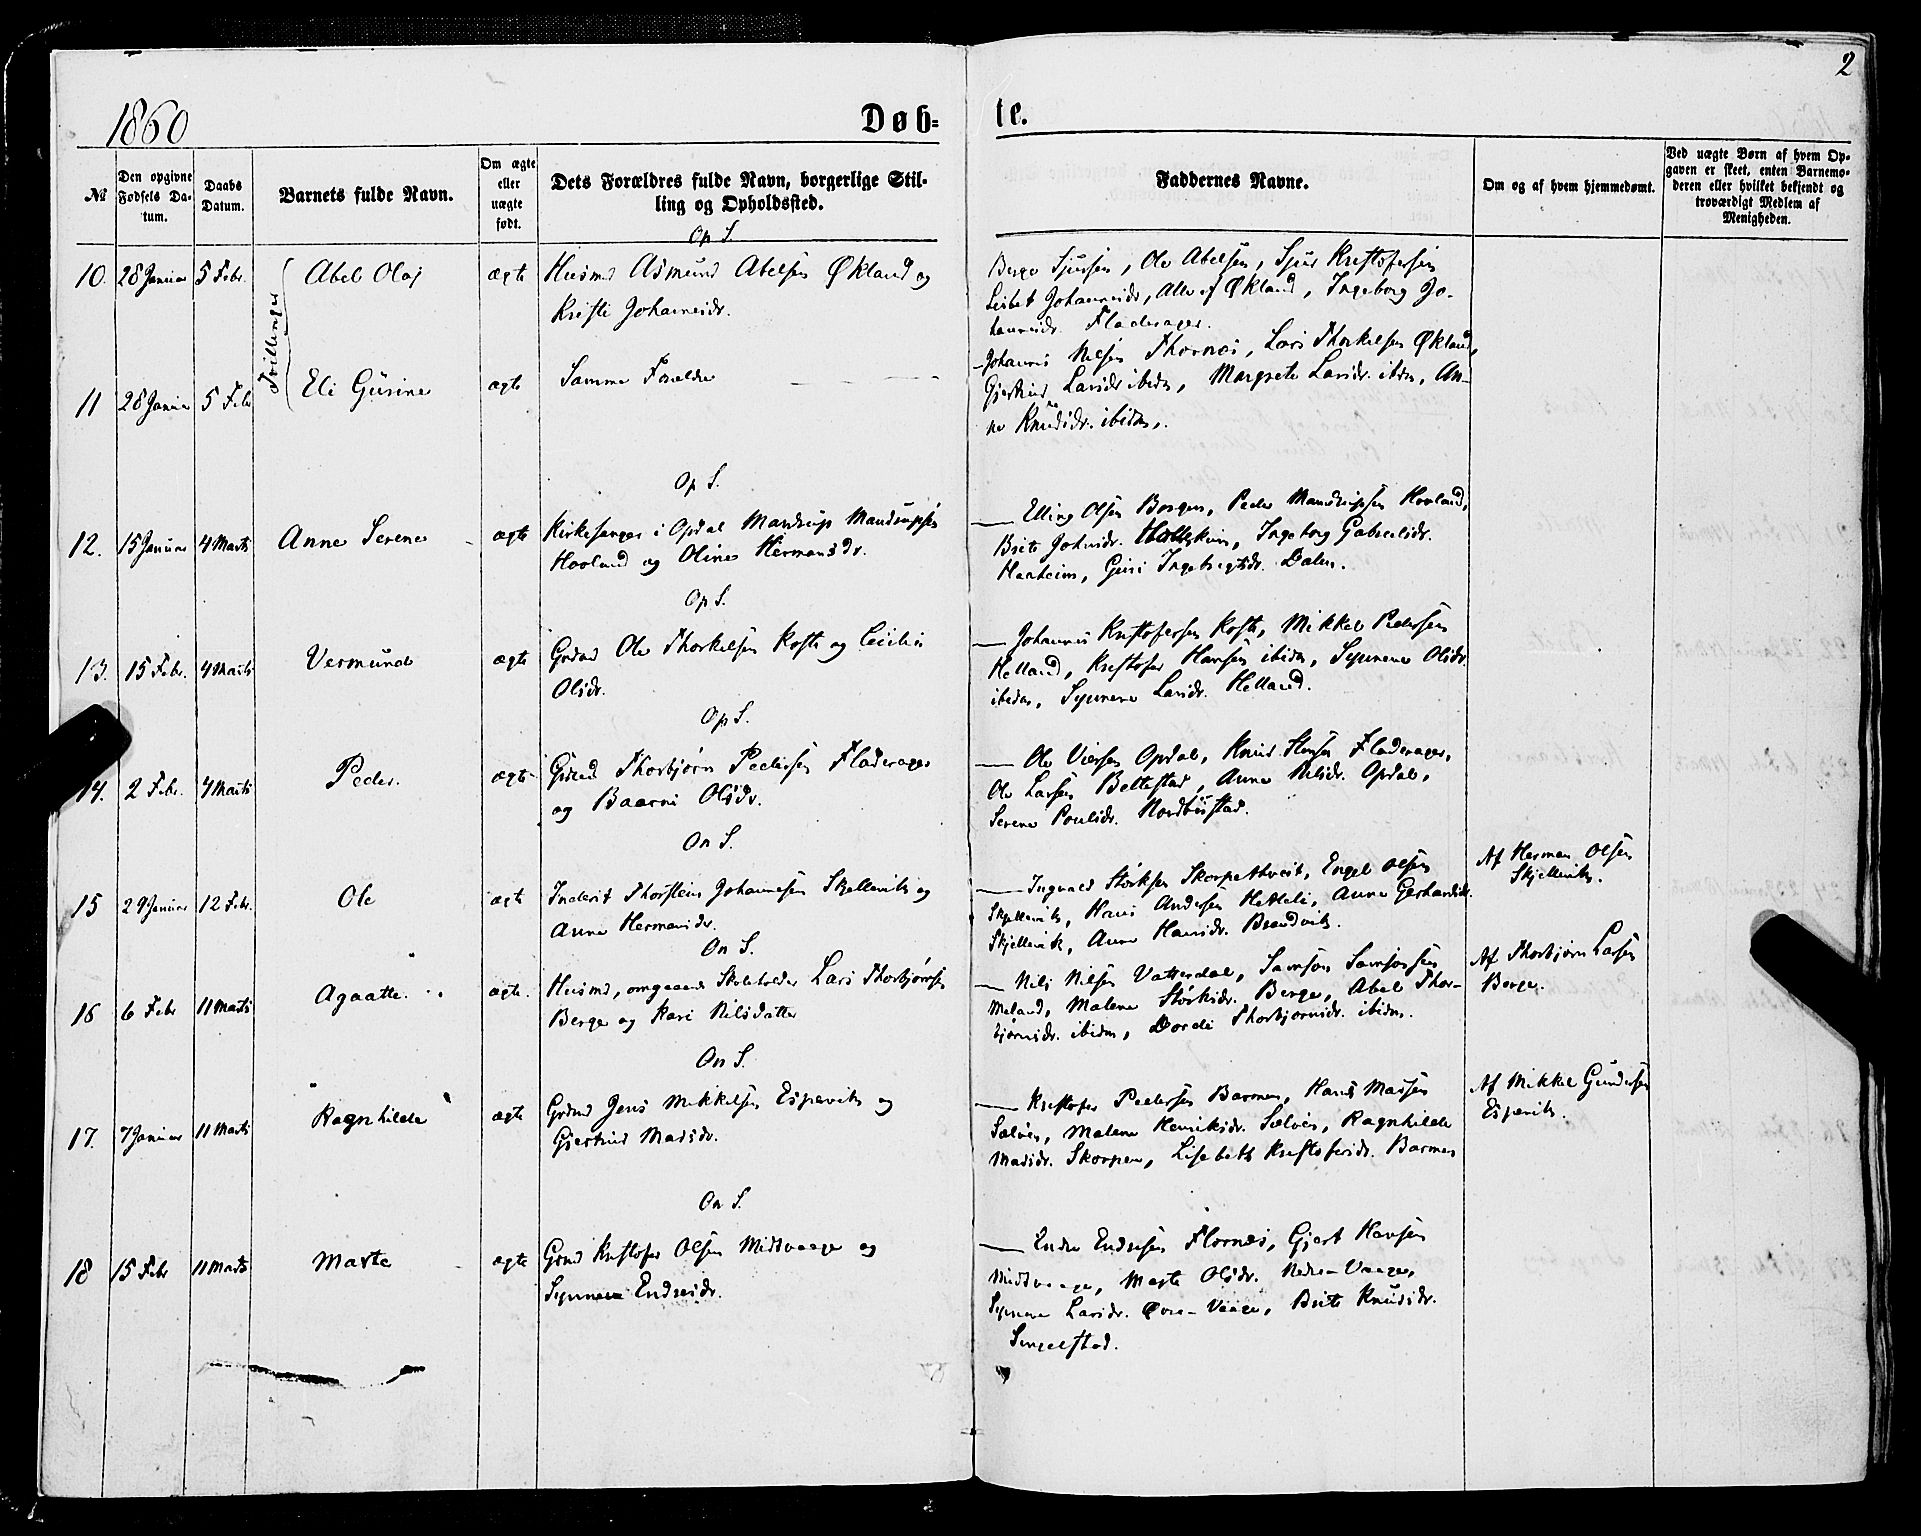 2
1860
Døb=
te.
№
Den opgivne Fødsels Da-tum.
Daabs Datum.
Barnets fulde Navn.
Om ægte eller uægte født.
Dets Forældres fulde Navn, borgerlige Stil-
ling og Opholdssted.
Faddernes Navne.
Om og af hvem hjemmedøbt.
Ved uægte Børn af hvem Op-
gaven er skeet, enten Barnemo-
deren eller hvilket bekjendt og
troværdigt Medlem af
Menigheden.
Op S.
10. 28 Januar 5 Febr. Abel Olaj ægte Husmd Asmund Abelsen Økland og
Kristi Johannesdr.
Berge Sjursen, Ole Abelsen, Sjur Kristofersen
Lisbet Johannesdr, Alle af Økland, Ingeborg Jo-
hannesdr. Fladerager.
Tvillinger
11 28 Januar 5 Febr Eli Gurine ægte Samme Forældre
Johannes Nilsen Thornes, Lars Thorkelsen Økland,
Gjertrud Larsdr ibidm, Margrete Larsdr. ibdm, An-
ne Knudsdr. ibidm.
Op S.
12. 15 Januar 4 Marts Anne Serene ægte Kirkesanger i Opdal Mandrup Mandrupsen
Hovland og Oline Hermansdr.
Elling Olsen Borgen, Peder Mandrupsen Hovland,
Brite Johnsdr. Ingeborg Gabrielsdr.
Hanheim, Guri Ingebrigtsdr. Dalen.
Op S.
13. 15 Febr. 4 Marts Vermund ægte Grdmd Ole Thorkelsen Koste og Cecilie
Olsdr.
Johannes Kristofersen Koste, Mikkel Pedersen
Helland, Kristofer Hansen ibidm, Synneve Olsdr
ibidm, Synneve Larsdr. Helland.
Op S.
14. 2 Febr. 4 Marts Peder. ægte Grdmd Thorbjørn Pedersen Fladerager
og Baarni Olsdr.
Ole Viersen Opdal, Knud Hansen Fladerager,
Ole Larsen Bellestad, Anne Nilsdr. Opdal,
Serene Poulsdr. Nordbustad.
On S.
15 29 Januar 12 Febr. Ole ægte Inderst Thorstein Johannesen Skjellevik og
Anne Hermansdr.
Ingvald Størksen Skorpethveit, Engel Olsen
Skjellevik, Hans Andersen Hetleli, Anne Gerhardsdr.
Skjellevik, Anne Hansdr. Brandvik.
Af Herman Olsen
Skjellevik.
On S.
16 6 Febr 11 Marts Agaatte. ægte. Husmd, omgaaende Skoleholder Lars Thorbjørnsen
Berge og Kari Nilsdatter
Nils Nilsen Vatterdal, Samson Samsonsen
Meland, Malene Størksdr. Berge, Abel Thor-
bjørnsdr. ibidm, Dordi Thorbjørnsdr. ibidm.
Af Thorbjørn Larsen
Berge.
On S.
17. 7 Januar 11 Marts Ragnhilde ægte Grdmd Jens Mikkelsen Espevik og
Gjertrud Madsdr.
Kristofer Pedersen Barmen, Hans Madsen
Sæløen, Malene Henriksdr. Sæløen, Ragnhilde
Madsdr. Skorpen, Lisebeth Kristofersdr. Barmen
Af Mikkel Gundersen
Espevik.
On S.
18 15 Febr 11 Marts Marte ægte Grmd Kristofer Olsen Midtvaage og
Synneve Endresdr.
Endre Endresen Flornes, Gjert Hansen
Midtvaage, Marte Olsdr. Nedre-Vaage,
Synneve Larsdr. Øvre-Vaage, Brite Knudsdr.
Singelstad.